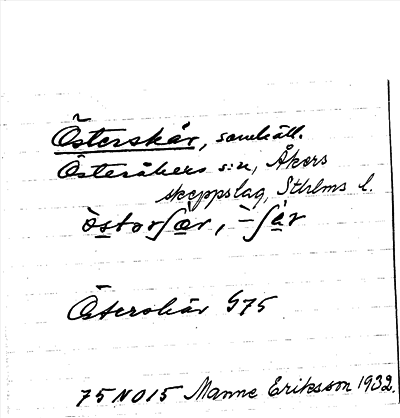 Österskär, samhäll.
Österåkers s:n, Åkers
skeppslag, Sthlms l.
Österskär G75
75 NO 15 Manne Eriksson 1932.